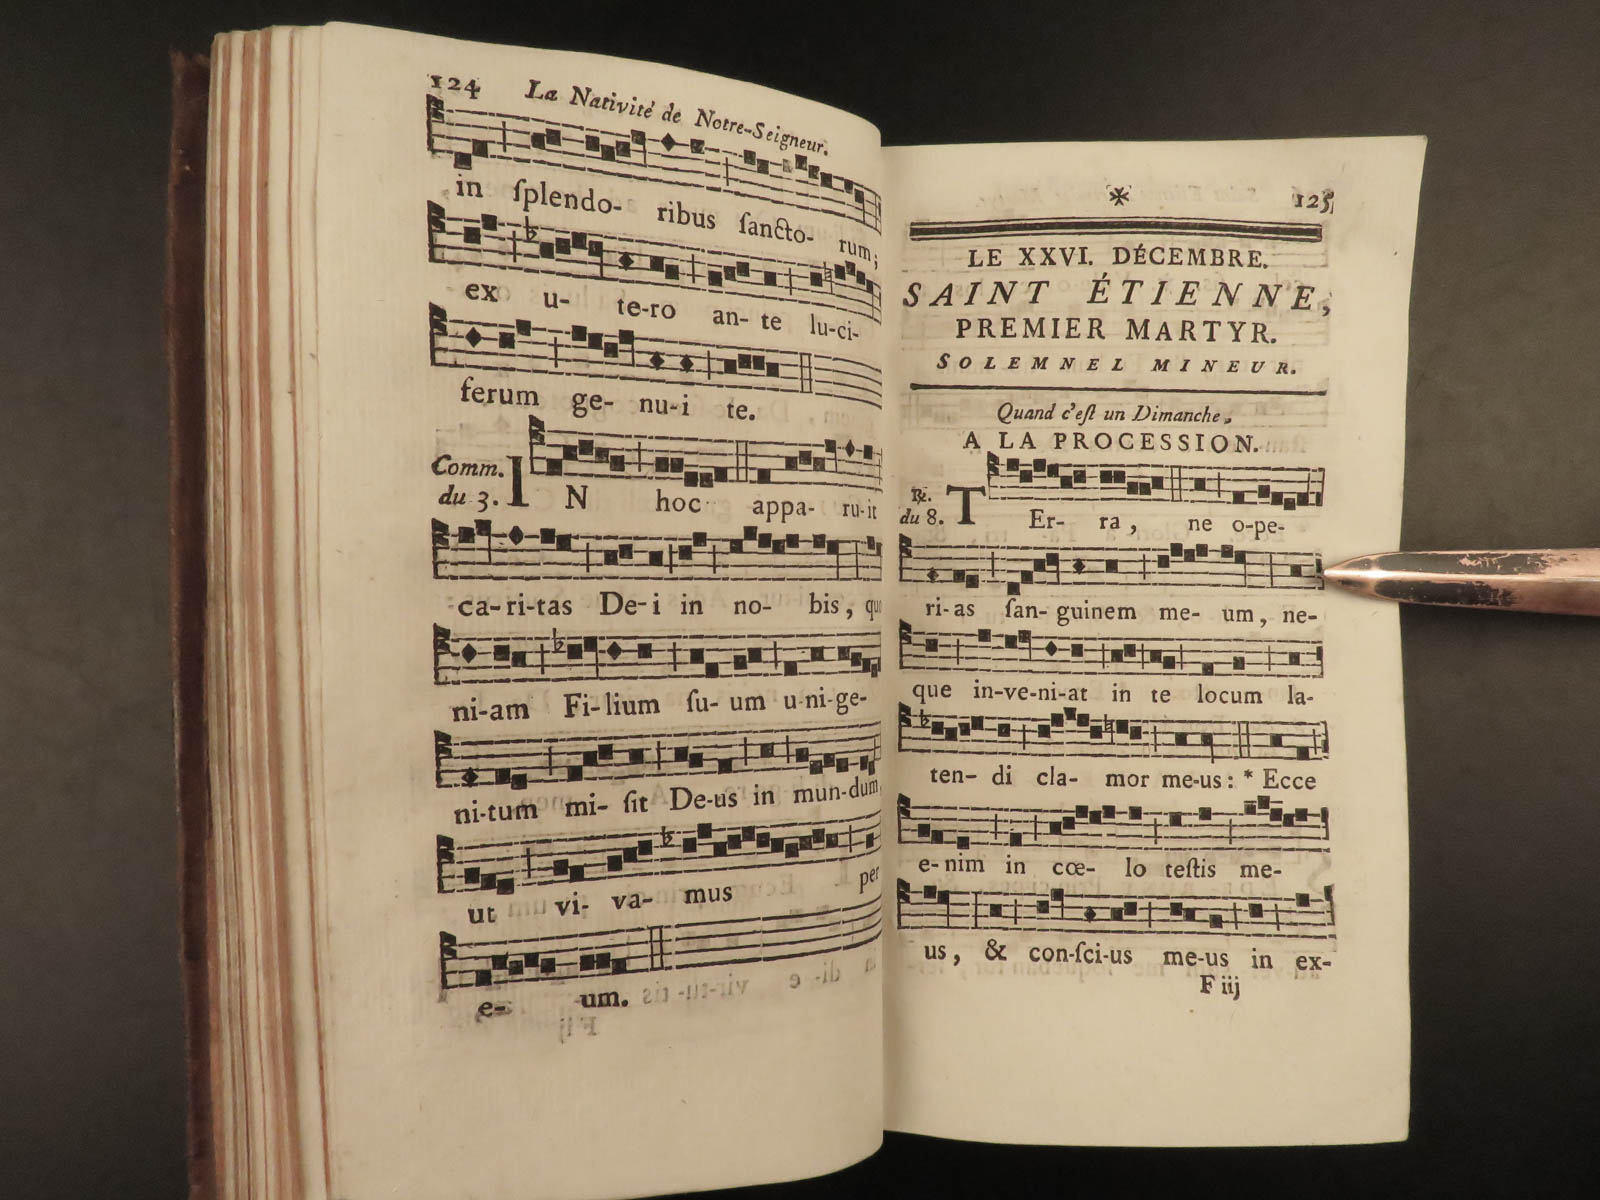 124 La Nativité de Notre-Seigneur.
in ſplendo- ribus ſancto- rum;
ex u- te-ro an- te lu-ci-
ferum ge- nu-i te.
Comm.
du 3.
IN hoc appa- ru-it
ca-ri-tas De-i in no- bis, quo
ni-am Fi-lium ſu- um u-ni-ge-
ni-tum mi- ſit De-us in mun-dum,
ut vi- va- mus per
e- um.
125
LE XXVI. DÉCEMBRE.
SAINT ÉTIENNE,
PREMIER MARTYR.
SOLEMNEL MINEUR.
Quand c'eſt un Dimanche,
A LA PROCESSION.
℟.
du 8.
TEr- ra, ne o-pe-
ri-as ſan- guinem me- um, ne-
que in-ve-ni-at in te locum la-
ten- di cla- mor me-us: * Ecce
e-nim in cœ- lo teſtis me-
us, & con-ſci-us me-us in ex-
F iij